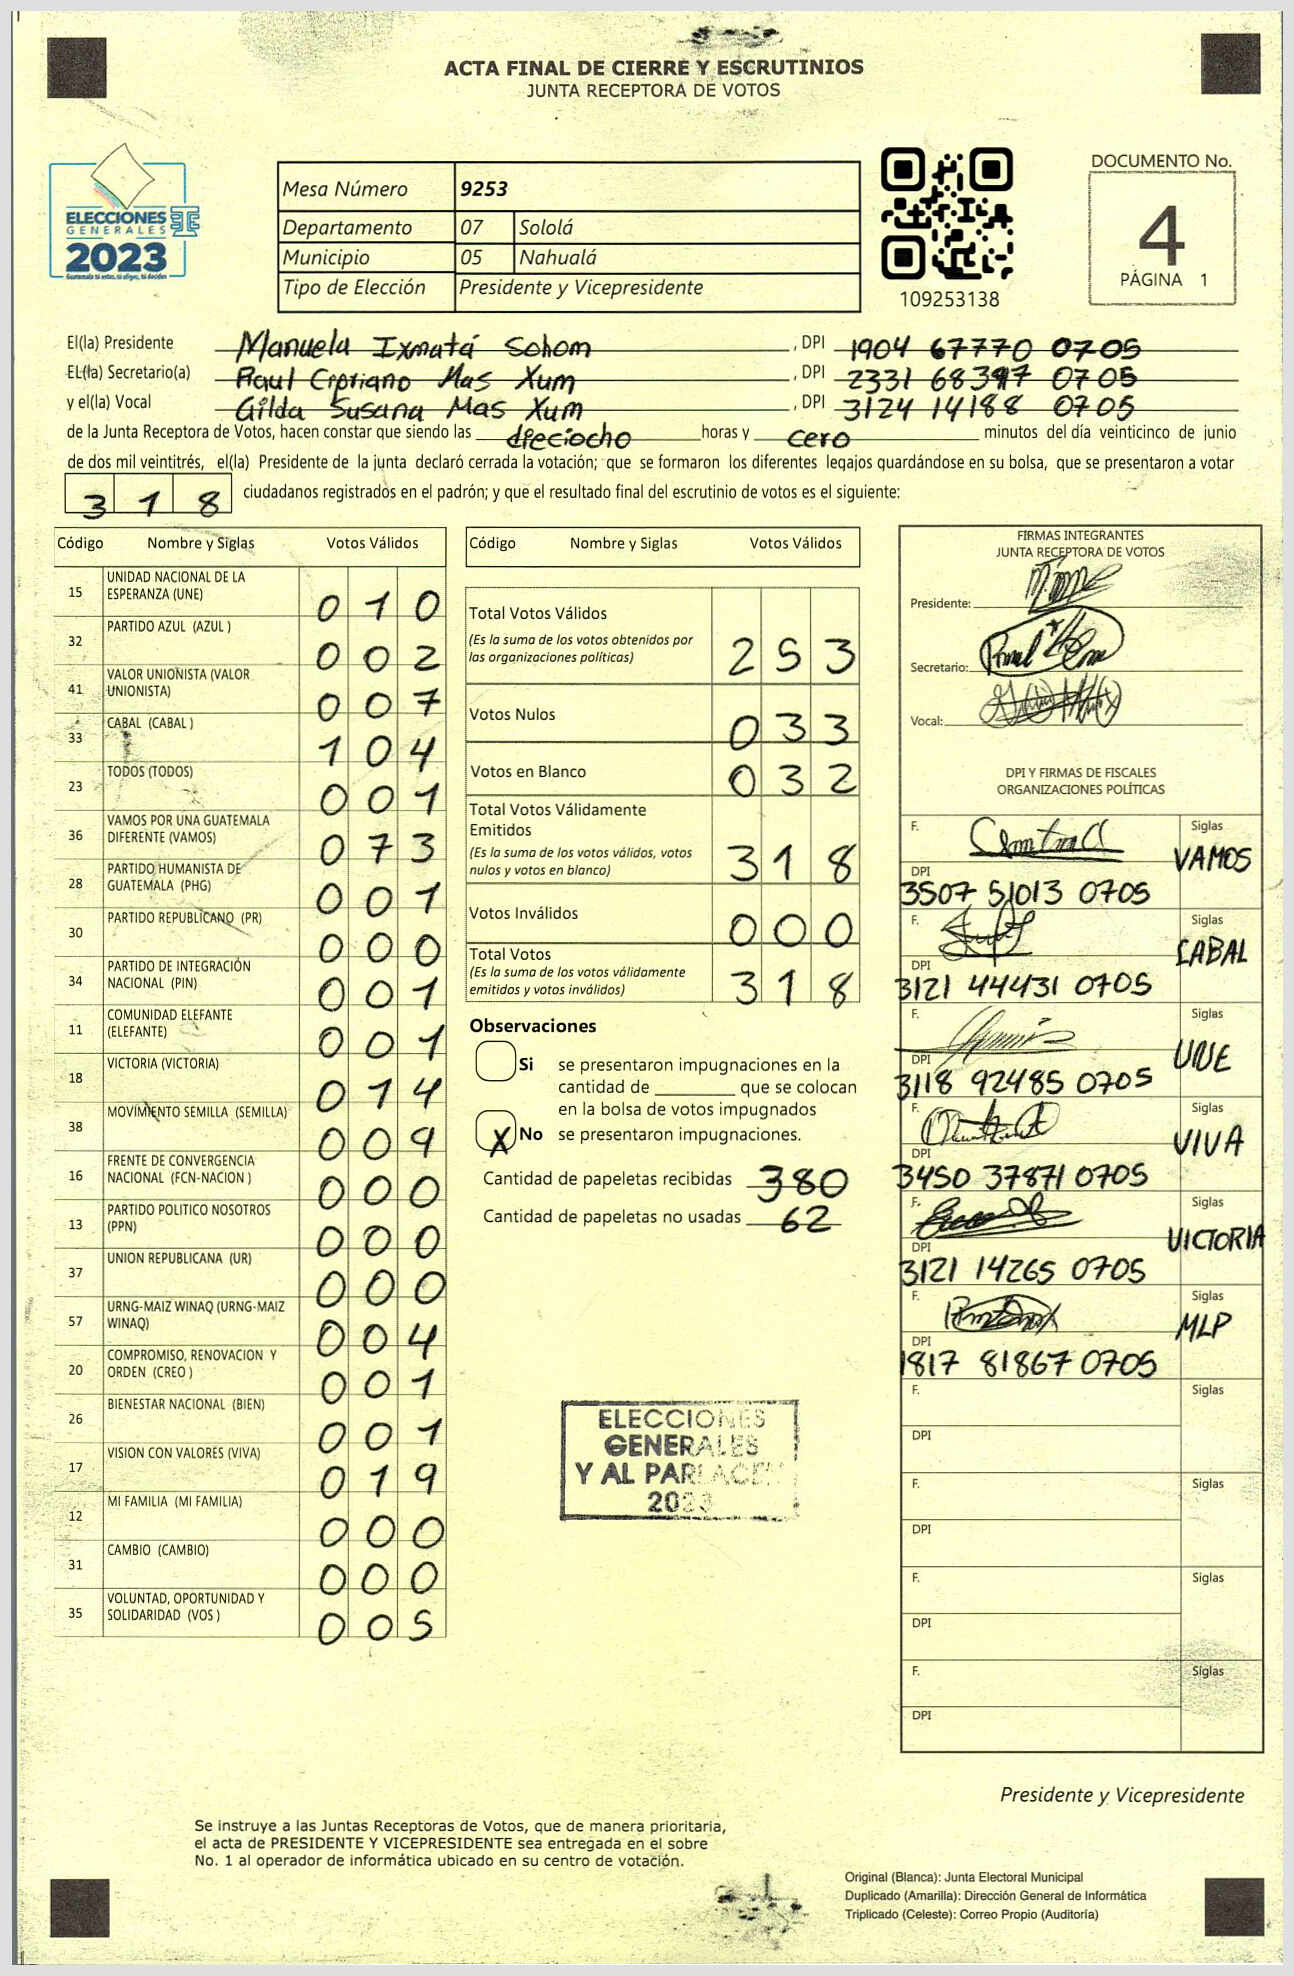 ACTA FINAL DE CIERRE Y ESCRUTINIOS
JUNTA RECEPTORA DE VOTOS
ELECCIONES
GENERALES
2023
Guatemala tú votas, tú eliges, tú decides
Mesa Número 9253
Departamento 07 Sololá
Municipio 05 Nahualá
Tipo de Elección Presidente y Vicepresidente
109253138
DOCUMENTO No.
4
PÁGINA 1
El(la) Presidente Manuela Ixmatá Sohom , DPI 1904 67770 0705
EL(la) Secretario(a) Raul Cipriano Mas Xum , DPI 2331 68397 0705
y el(la) Vocal Gilda Susana Mas Xum , DPI 3124 14188 0705
de la Junta Receptora de Votos, hacen constar que siendo las dieciocho horas y cero minutos del día veinticinco de junio
de dos mil veintitrés, el(la) Presidente de la junta declaró cerrada la votación; que se formaron los diferentes legajos guardándose en su bolsa, que se presentaron a votar
318 ciudadanos registrados en el padrón; y que el resultado final del escrutinio de votos es el siguiente:
Código Nombre y Siglas Votos Válidos
15 UNIDAD NACIONAL DE LA
ESPERANZA (UNE) 010
32 PARTIDO AZUL (AZUL ) 002
41 VALOR UNIONISTA (VALOR
UNIONISTA) 007
33 CABAL (CABAL ) 104
23 TODOS (TODOS) 001
36 VAMOS POR UNA GUATEMALA
DIFERENTE (VAMOS) 073
28 PARTIDO HUMANISTA DE
GUATEMALA (PHG) 001
30 PARTIDO REPUBLICANO (PR) 000
34 PARTIDO DE INTEGRACIÓN
NACIONAL (PIN) 001
11 COMUNIDAD ELEFANTE
(ELEFANTE) 001
18 VICTORIA (VICTORIA) 014
38 MOVIMIENTO SEMILLA (SEMILLA) 009
16 FRENTE DE CONVERGENCIA
NACIONAL (FCN-NACION ) 000
13 PARTIDO POLITICO NOSOTROS
(PPN) 000
37 UNION REPUBLICANA (UR) 000
57 URNG-MAIZ WINAQ (URNG-MAIZ
WINAQ) 004
20 COMPROMISO, RENOVACION Y
ORDEN (CREO ) 001
26 BIENESTAR NACIONAL (BIEN) 001
17 VISION CON VALORES (VIVA) 019
12 MI FAMILIA (MI FAMILIA) 000
31 CAMBIO (CAMBIO) 000
35 VOLUNTAD, OPORTUNIDAD Y
SOLIDARIDAD (VOS ) 005
Código Nombre y Siglas Votos Válidos
Total Votos Válidos
(Es la suma de los votos obtenidos por
las organizaciones políticas) 253
Votos Nulos 033
Votos en Blanco 032
Total Votos Válidamente
Emitidos
(Es la suma de los votos válidos, votos
nulos y votos en blanco) 318
Votos Inválidos 000
Total Votos
(Es la suma de los votos válidamente
emitidos y votos inválidos) 318
Observaciones
Si se presentaron impugnaciones en la
cantidad de ________ que se colocan
en la bolsa de votos impugnados
X No se presentaron impugnaciones.
Cantidad de papeletas recibidas 380
Cantidad de papeletas no usadas 62
ELECCIONES
GENERALES
Y AL PARLACEN
2023
FIRMAS INTEGRANTES
JUNTA RECEPTORA DE VOTOS
Presidente:
Secretario:
Vocal:
DPI Y FIRMAS DE FISCALES
ORGANIZACIONES POLÍTICAS
F. Siglas VAMOS
DPI
3507 51013 0705
F. Siglas CABAL
DPI
3121 44431 0705
F. Siglas UNE
DPI
3118 92485 0705
F. Siglas VIVA
DPI
3450 37871 0705
F. Siglas VICTORIA
DPI
3121 14265 0705
F. Siglas MLP
DPI
1817 81867 0705
F. Siglas
DPI
F. Siglas
DPI
F. Siglas
DPI
F. Siglas
DPI
Presidente y Vicepresidente
Se instruye a las Juntas Receptoras de Votos, que de manera prioritaria,
el acta de PRESIDENTE Y VICEPRESIDENTE sea entregada en el sobre
No. 1 al operador de informática ubicado en su centro de votación.
Original (Blanca): Junta Electoral Municipal
Duplicado (Amarilla): Dirección General de Informática
Triplicado (Celeste): Correo Propio (Auditoría)